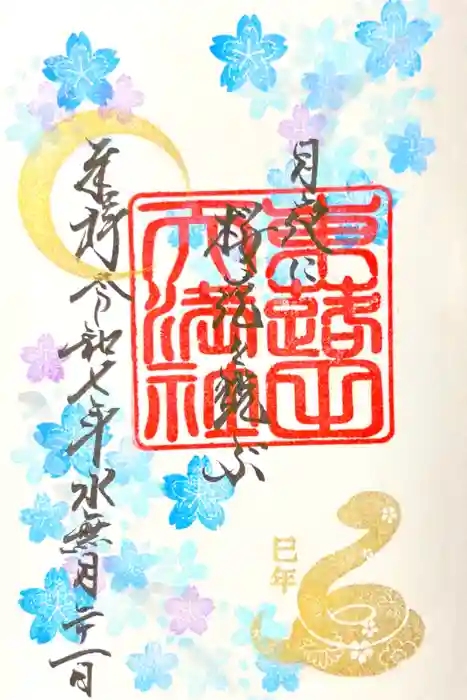 月夜に
桜花
東蕗田
天満社
奉拝 令和七年水無月二十一日
巳年